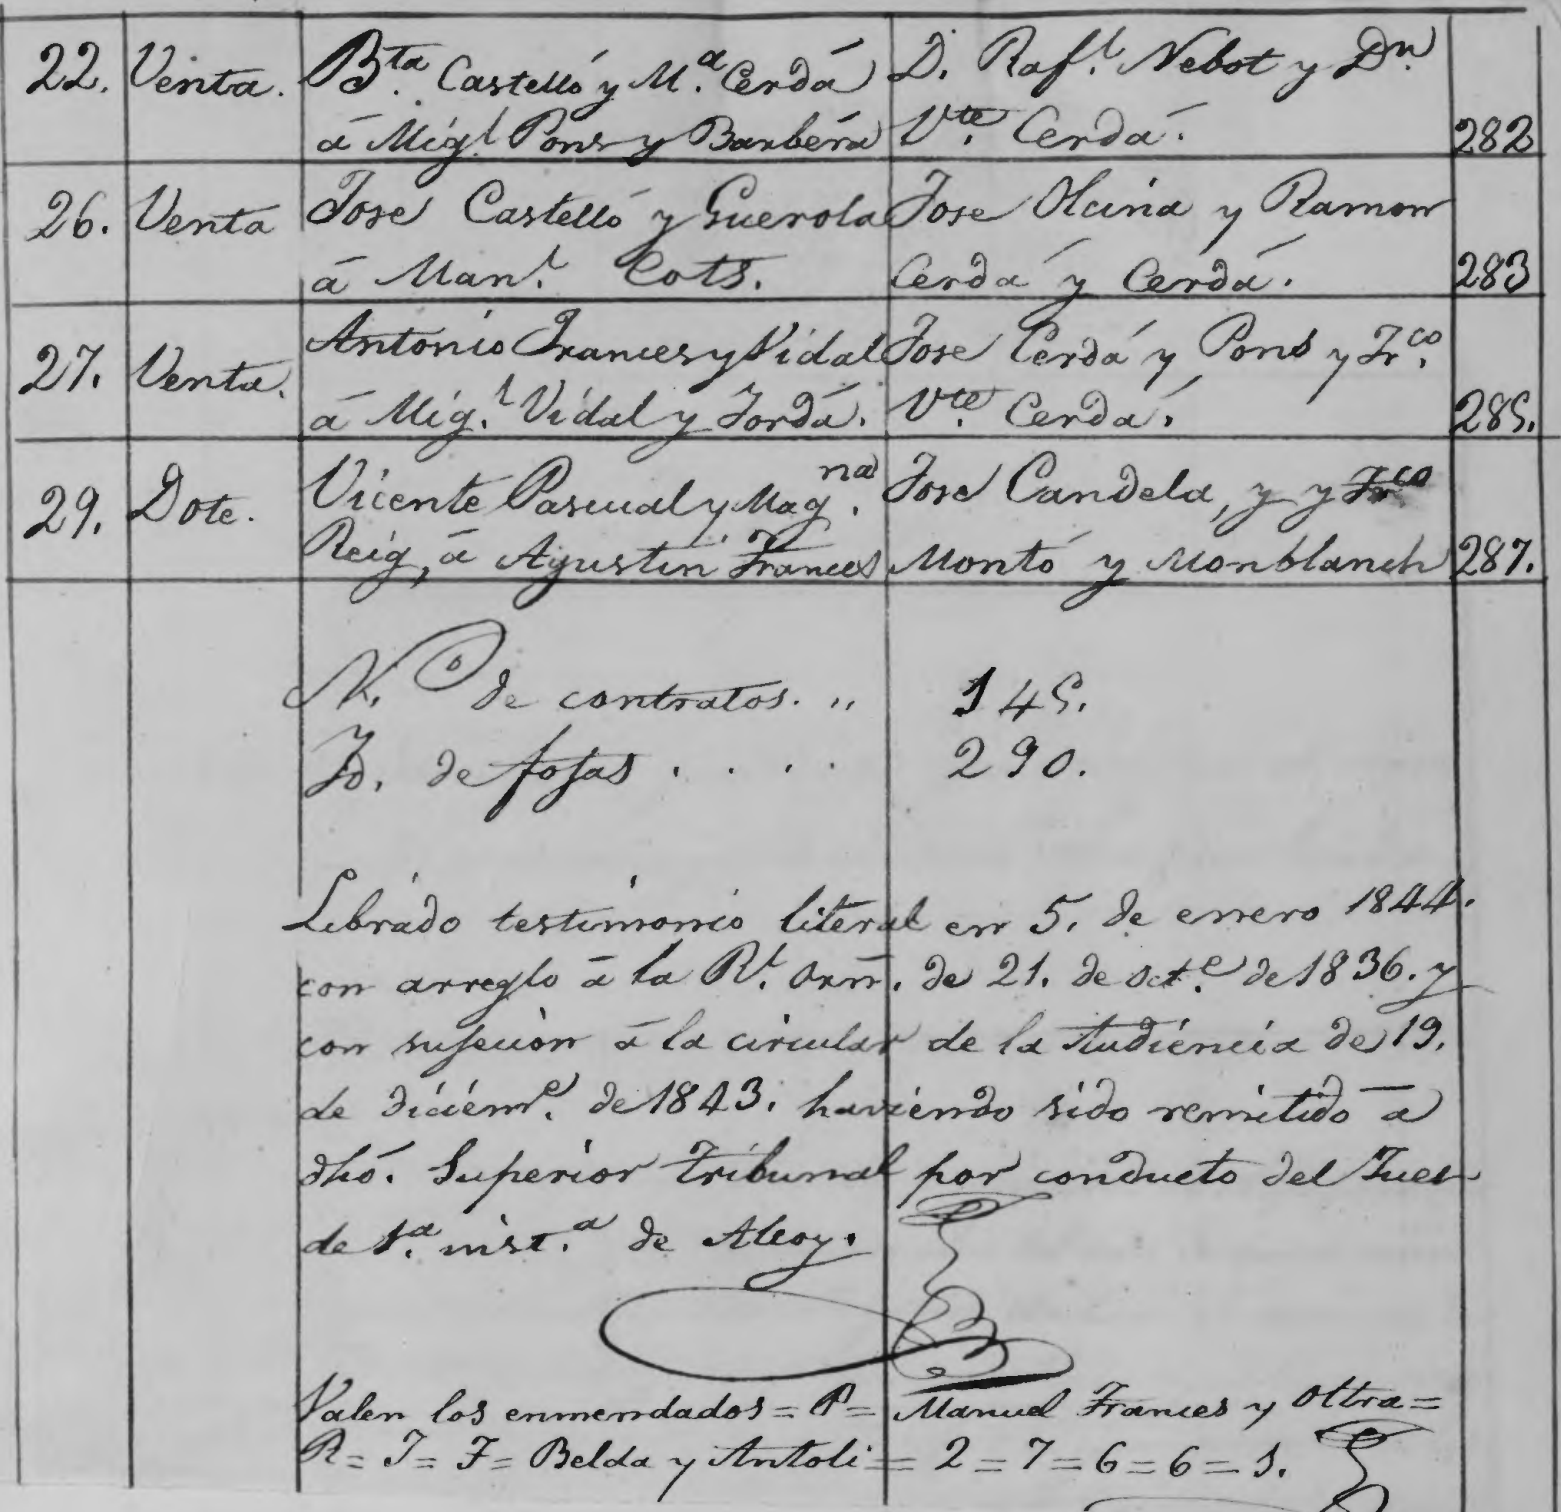 22. Venta. Bta. Castelló y M.a Cerdá D. Raf.l Nebot y Dn.
á Migl. Pons y Barbéra Vte. Cerdá. 282
26. Venta Jose Castelló y Guerola Jose Olcina y Ramon
á Man.l Cots. Cerdá y Cerdá. 283
27. Venta. Antonio Frances y Vidal Jose Cerdá y Pons y Frco.
á Mig.l Vidal y Jordá. Vte. Cerdá. 285.
29. Dote. Vicente Pascual y Magna. Jose Candela, y y Frco
Reig, á Agustin Frances Montó y Monblanch 287.
N.o de contratos. „ 145.
Id. de fojas . . . . 290.
Librado testimonio literal en 5. de enero 1844.
con arreglo á la Rl. orn. de 21. de oct.e de 1836. y
con sujecion á la circular de la Audiencia de 19.
de diciem.e de 1843. haviendo sido remitido á
dhó. Superior tribunal por conducto del Juez
de 1.a inst.a de Alcoy.
Valen los enmendados = P = Manuel Frances y Oltra =
R = J = F = Belda y Antoli = 2 = 7 = 6 = 6 = 1.